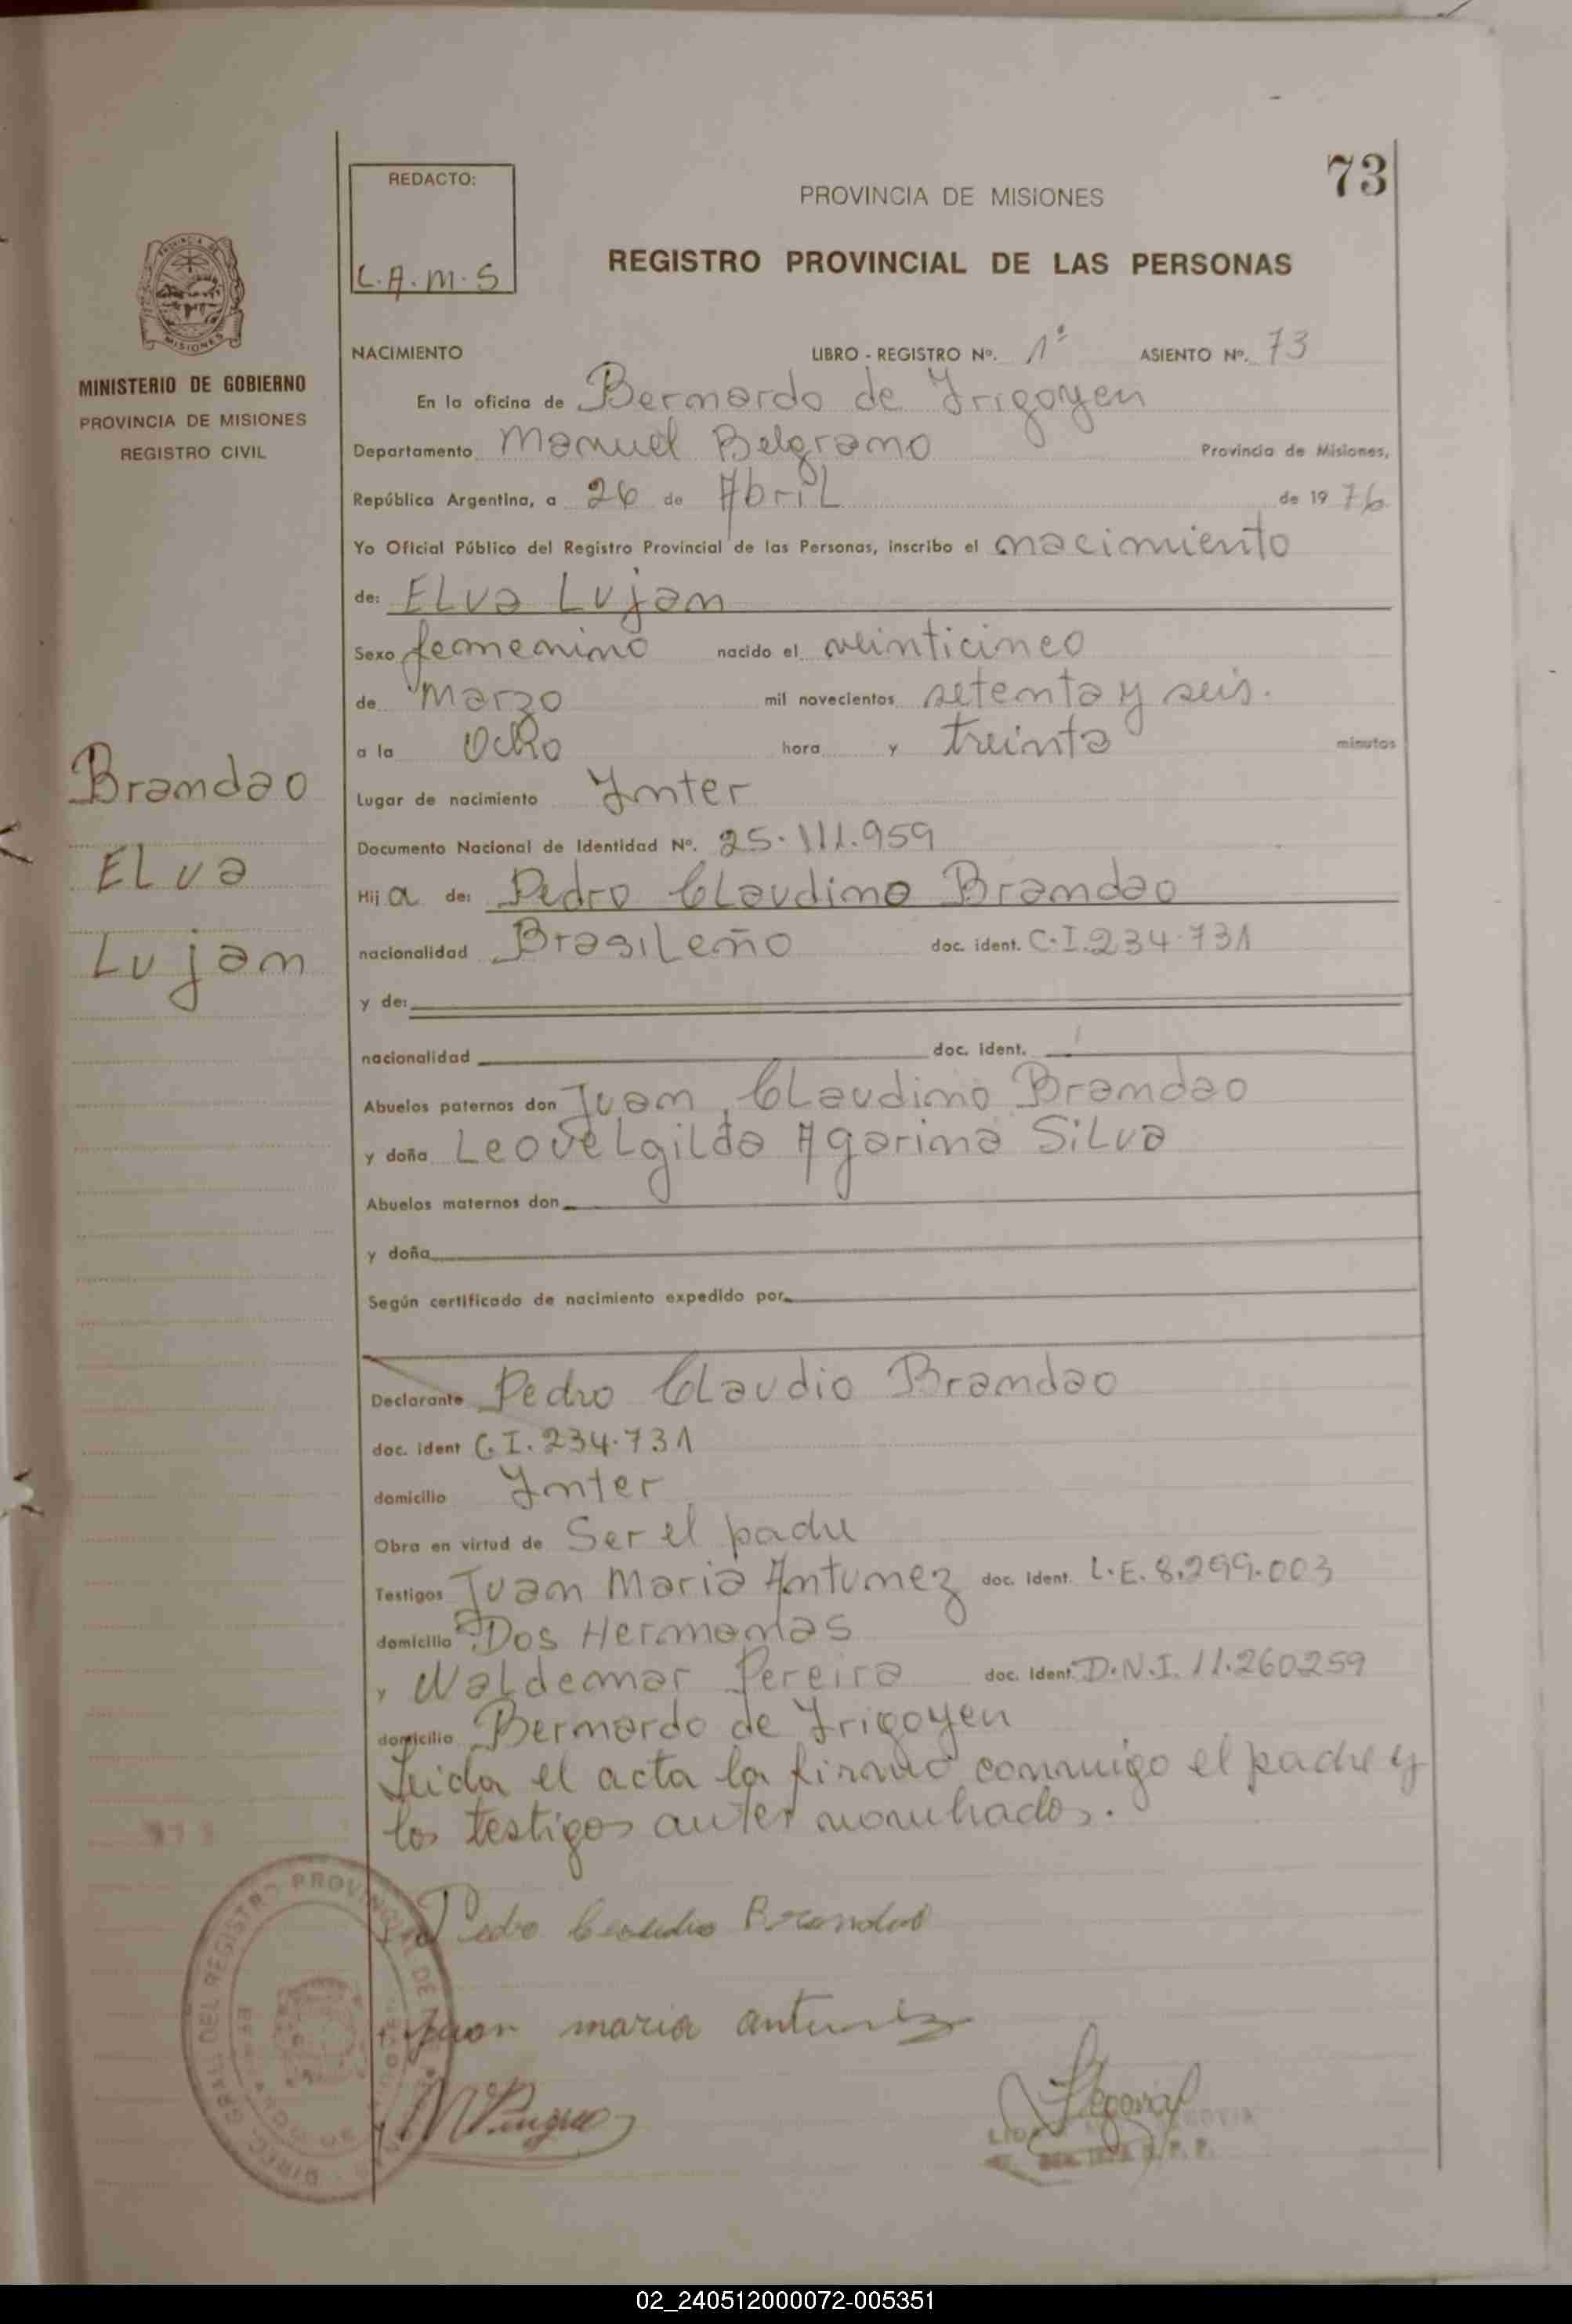 73
REDACTO:
L.A.M.S
PROVINCIA DE MISIONES
REGISTRO PROVINCIAL DE LAS PERSONAS
MINISTERIO DE GOBIERNO
PROVINCIA DE MISIONES
REGISTRO CIVIL
NACIMIENTO LIBRO - REGISTRO Nº. 1º ASIENTO Nº. 73
En la oficina de Bernardo de Irigoyen
Departamento Manuel Belgrano Provincia de Misiones,
República Argentina, a 26 de Abril de 1976
Yo Oficial Público del Registro Provincial de las Personas, inscribo el nacimiento
de: ELva Lujan
Sexo femenino nacido el veinticinco
de Marzo mil novecientos setenta y seis.
a la Ocho hora y treinta minutos
Lugar de nacimiento Inter
Documento Nacional de Identidad Nº. 25.111.959
Hija de: Pedro Claudino Brandao
nacionalidad Brasileño doc. ident. C.I.234.731
y de:
nacionalidad doc. ident.
Abuelos paternos don Juan Claudino Brandao
y doña Leovelgilda Agarina Silva
Abuelos maternos don
y doña
Según certificado de nacimiento expedido por
Declarante Pedro Claudio Brandao
doc. ident C.I.234.731
domicilio Inter
Obra en virtud de Ser el padre
Testigos Juan Maria Antunez doc. ident. L.E. 8.299.003
domicilio Dos Hermanas
y Waldemar Pereira doc. ident. D.N.I. 11.260259
domicilio Bernardo de Irigoyen
Leida el acta la firmó conmigo el padre y
los testigos antes nombrados.
Brandao
Elva
Lujan
Pedro Claudio Brandao
Juan maria antunez
DIREC. GRAL. DEL REGISTRO PROVINCIAL DE
02_240512000072-005351